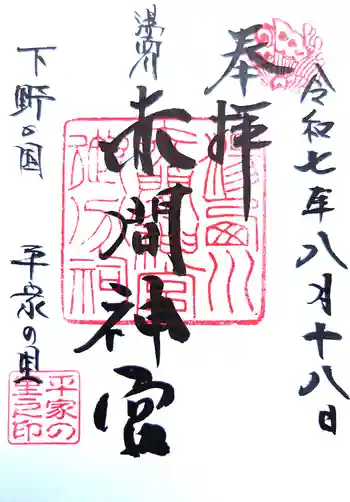 令和七年八月十八日
奉拝
湯西川
赤間神宮
下野の国 平家の里
平家の
里之印